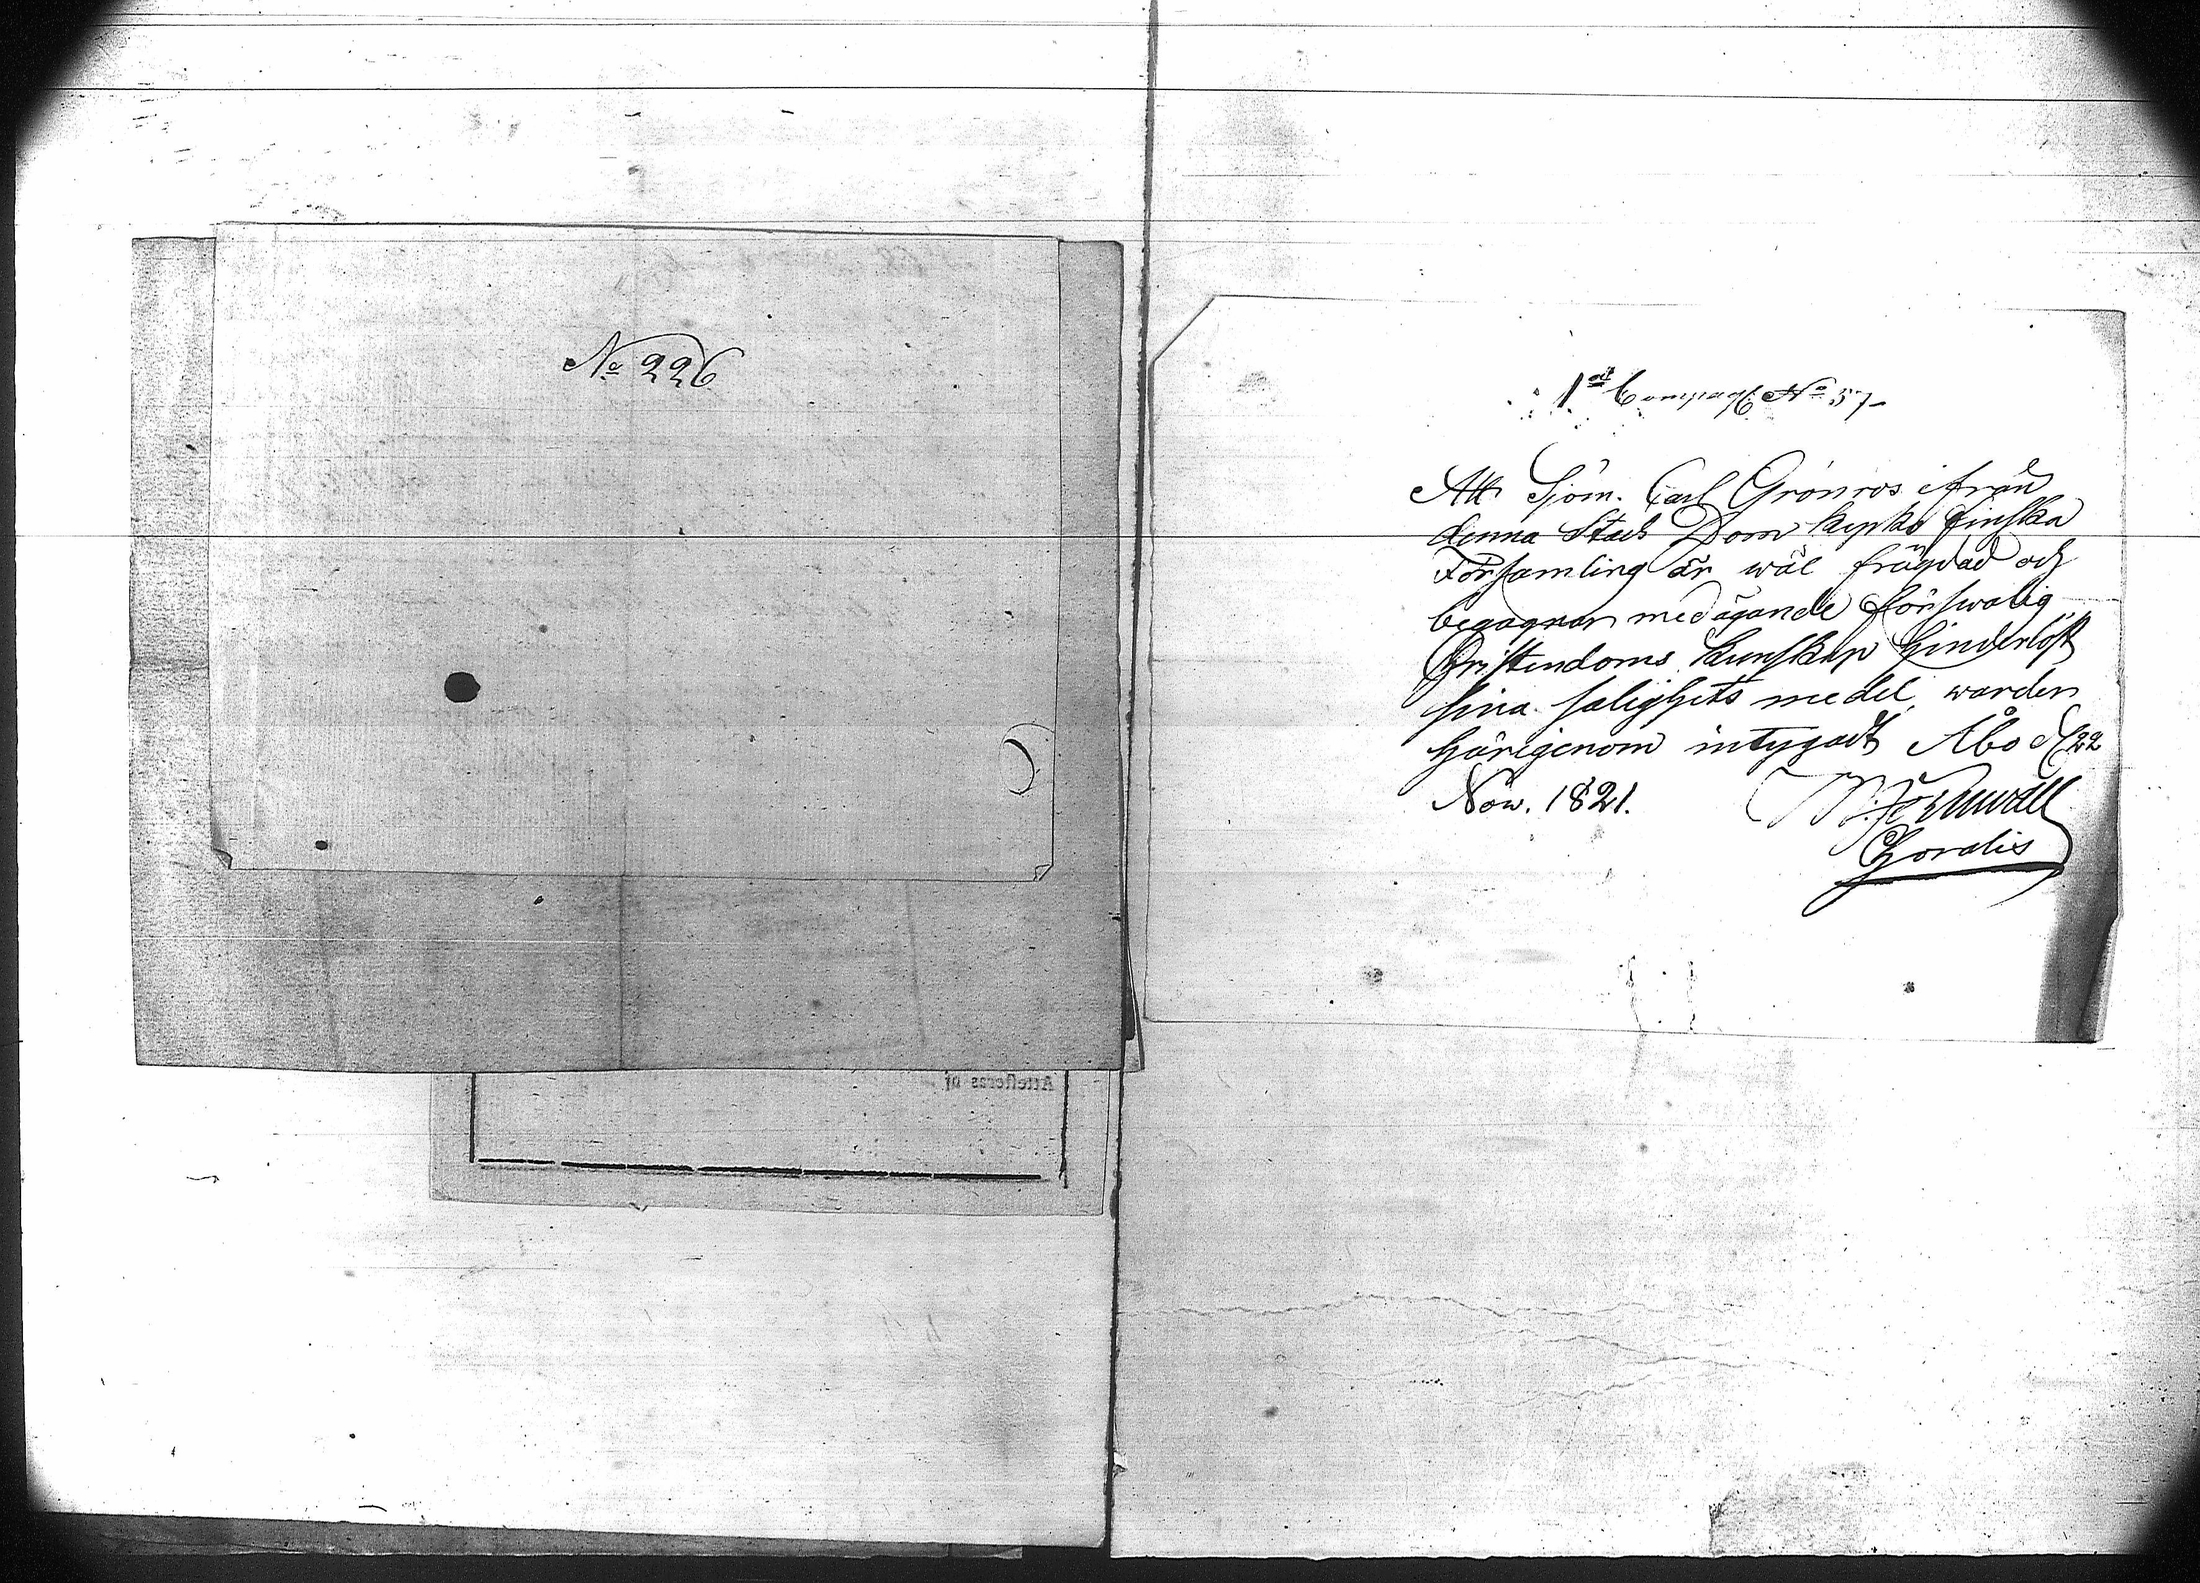 No 226
1sta Compag. No 57
Att Sjöm. Carl Grönroos ifrån
denna Stads Domkyrko finska
Församling är wäl frägdad och
begagnar med ägande förswarlig
Christendoms kunskap hinderlöst
sina salighets medel, warder
härigenom intygadt Åbo d. 22
Nov. 1821.
Attesteras af